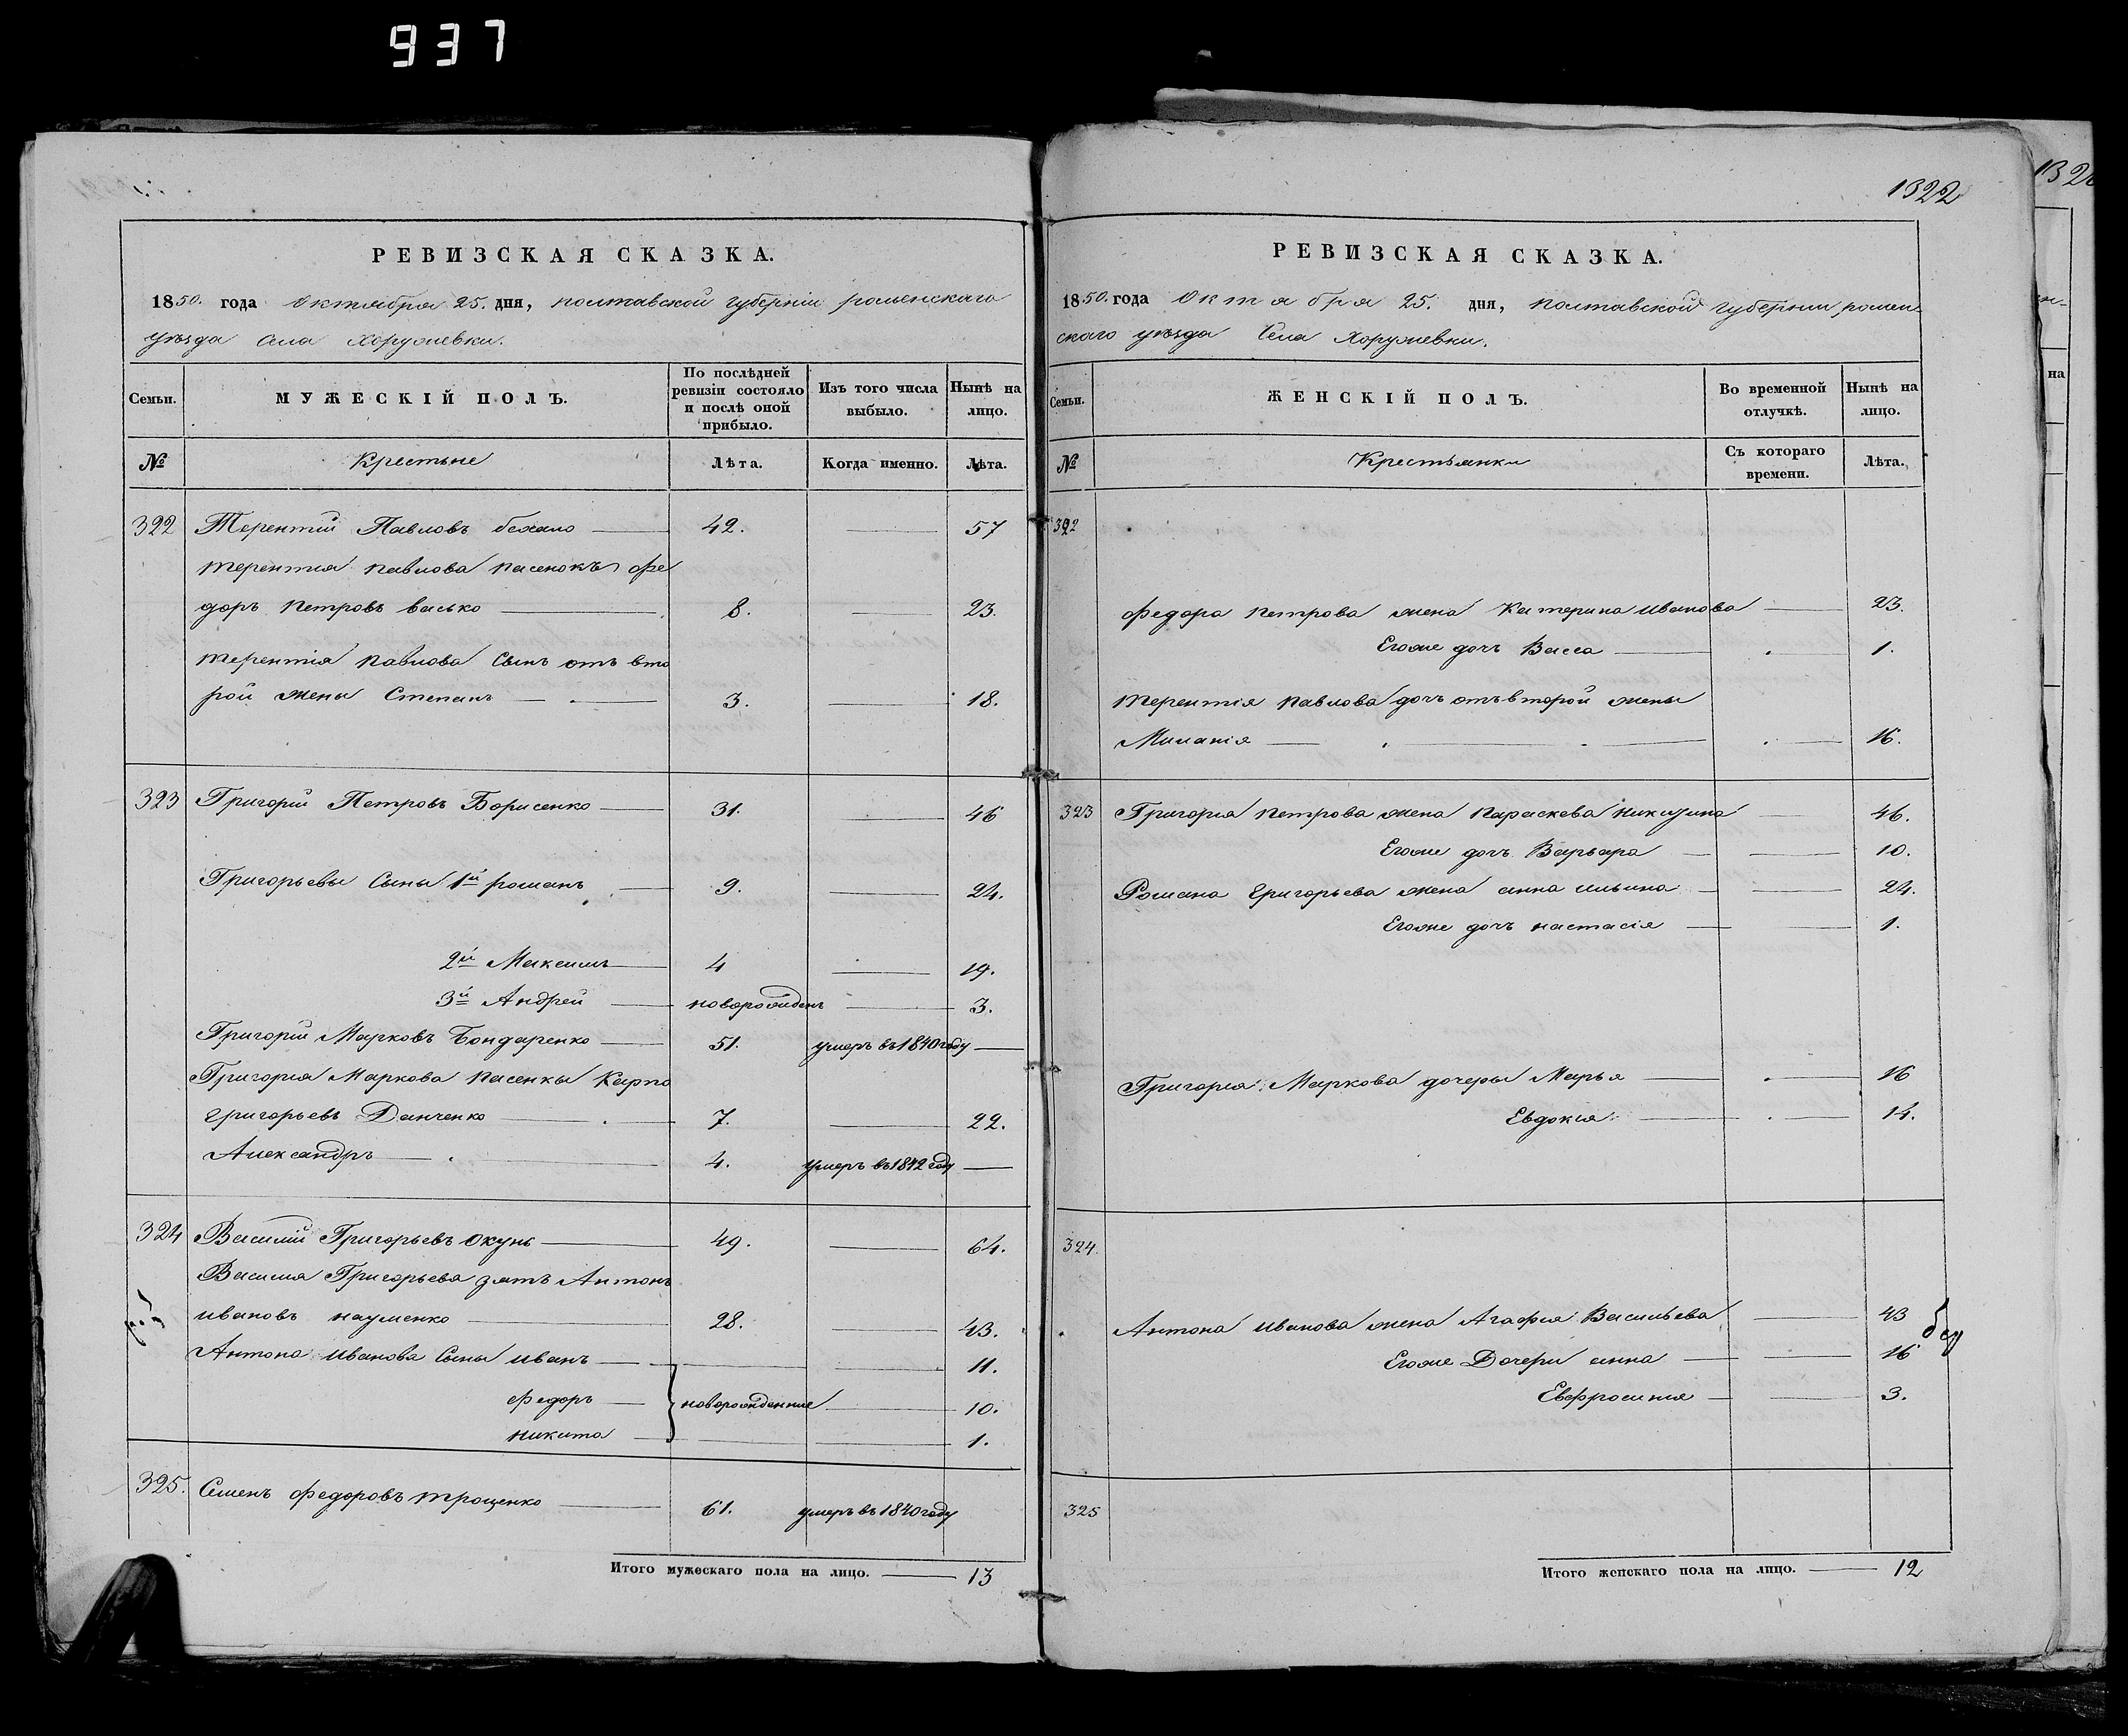 937
1322
132
РЕВИЗСКАЯ СКАЗКА.
1850. года Октября 25. дня, полтавской губерніи роменскаго
уѣзда Села Хоружевки.
Семьи.
МУЖЕСКІЙ ПОЛЪ.
По послѣдней ревизіи состояло и послѣ оной прибыло.
Изъ того числа выбыло.
Нынѣ на лицо.
№
Крестьне
Лѣта.
Когда именно.
Лѣта.
322 Терентій Павловъ бехало — 42. — 57
терентия павлова пасенокъ фе
доръ петровъ васько — 8. — 23.
терентія павлова Сынъ отъ вто
рой жены Степанъ — 3. — 18.
323 Григорій Петровъ Борисенко — 31. — 46
Григорьевы Сыны 1й романъ — 9. — 24.
2й Максимъ — 4 — 19.
3й Андрей — новорожденъ — 3.
Григорій Марковъ Бондаренко — 51. умеръ въ 1840 году —
Григория Маркова пасенкы Карпо
григорьевъ Данченко — 7. — 22.
Александръ — 4. умеръ въ 1842 году —
324 Василій Григорьевъ Окунь — 49. — 64.
Василия Григорьева зять Антонъ
ивановъ науменко — 28. — 43.
Антона иванова Сыны иванъ — 11.
федоръ — новорожденние — 10.
никита — 1.
325. Семенъ федоровъ трощенко — 61. умеръ въ 1840 году
Итого мужескаго пола на лицо. — 13
РЕВИЗСКАЯ СКАЗКА.
1850. года Октября 25. дня, полтавской губернии ромен
скаго уѣзда Села Хоружевки.
Семьи.
ЖЕНСКІЙ ПОЛЪ.
Во временной отлучкѣ.
Нынѣ на лицо.
№
Крестьянки
Съ котораго времени.
Лѣта.
322
федора петрова жена Катерина иванова — 23.
Егоже дочь Васса — 1.
терентія павлова дочь отъ второй жены
Миланія — 16.
323 Григория петрова жена параскева никитина — 46.
Егоже дочь Варвара — 10.
Романа григорьева жена анна ильина — 24.
Егоже дочь настасія — 1.
Григория Маркова дочеры Марья — 16
Евдокия — 14.
324.
Антона иванова жена Агафия Васильева — 43
Егоже Дочери анна — 16
Евфросиния — 3.
325
Итого женскаго пола на лицо. — 12
на